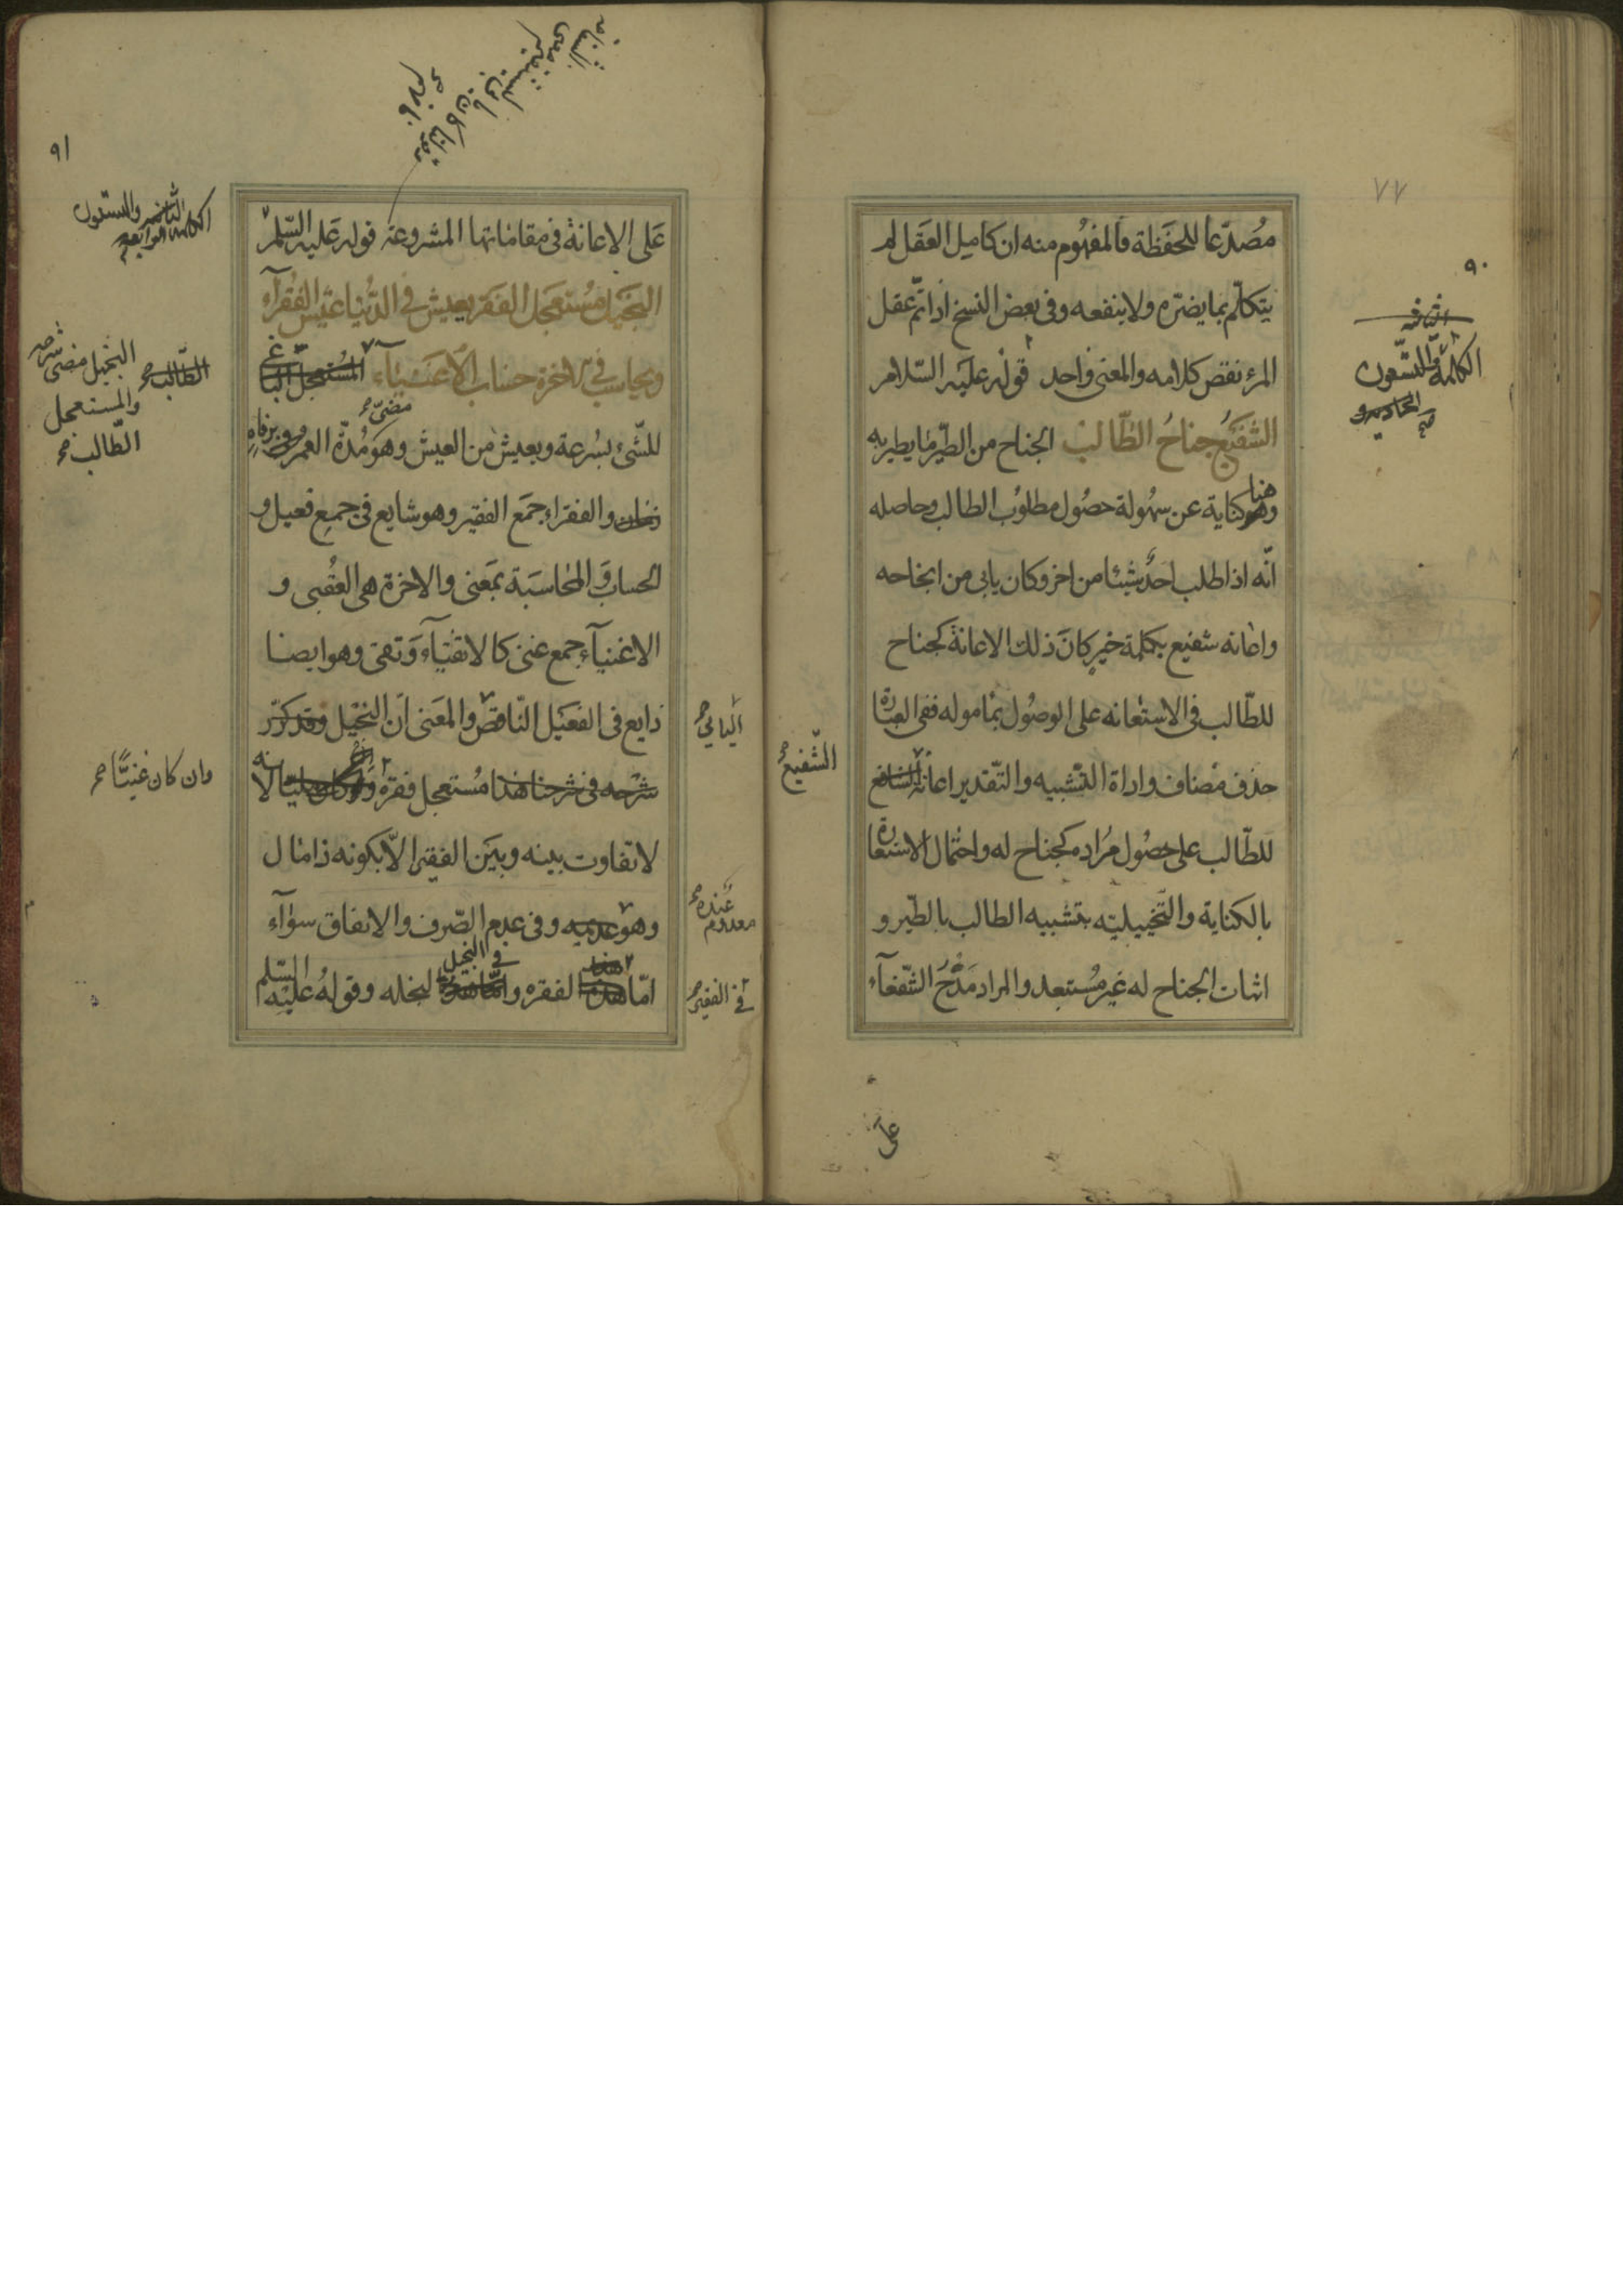 ٧٧
٩٠
الكلمة والستون
مُصْدّعا للحفَظة فالمفهُوم منه ان كامل العقَل لم
يتكلّم بما يضرّه ولا ينفعه وفى بعض النسخ اذا تمّ عقل
المرء نقص كلامه والمعنى واحد قوله عليه السّلام
الشفيعُ جناحُ الطّالب الجناح من الطّير ما يطير به
وهو هنا كناية عن سهُولة حصُول مطلوب الطالب وحاصله
انّه اذا طلب احدٌ شيئا من اخر وكان يابى من انجاحه
واعانه شفيع بكلمة خيرٍ كانَ ذلك الاعانة كجناح
للطّالب فى الاستعانه على الوصُول بماموله ففى العبارة
حذف مضاف واداة التّشبيه والتّقدير اعانة الشافع
الشّفيع صح
للطّالب على حصُول مُراده كجناح له واحتمال الاستعارة
بالكناية والتّخييليّه بتشبيه الطالب بالطّير و
اثبات الجناح له غير مُستبعد والمراد مَدْحُ الشّفعآء
على
٩١
الكلمة والستون
عَلى الاعانة فى مقاماتها المشروعة قوله عَليه السّلم
البَخيل مُستعجل الفَقر يعيش فى الدُّنيا عَيش الفُقرآء
ويحاسب فى الاخرة حسَاب الاغنيآء المُستعجل
البَخيل مضى شرحه
والمستعجل
الطّالب صح
للشّىء بسُرعة ويعيش من العيش وهوَ مُدّة العمر
مضىّ صح
والفقراء جمَع الفقير وهو شايع فى جميع فعيل و
الحساب وَالمحاسَبَة بمَعنى والاخرة هى العقُبى و
الاغنيآء جمع غنىّ كالاتقيآء وَتقىّ وهو ايضا
ذايع فى الفعَيل النّاقص والمعَنى ان البخيل وقد كرّر
اليائى صح
شرحه فى شرحنا هذا مُستعجل فقره لانه
وان كان غنيّا صح
لا تفاوت بينه وبيَن الفقير الاّ بكونه ذا مال
وهو عديمه وفى عدم الصّرف والانفاق سوآء
عنده معدوم صح
امّا الفقره وامّا لبخله وقولهُ عليْه السّلم
فى البخيل
فى الفقير صح